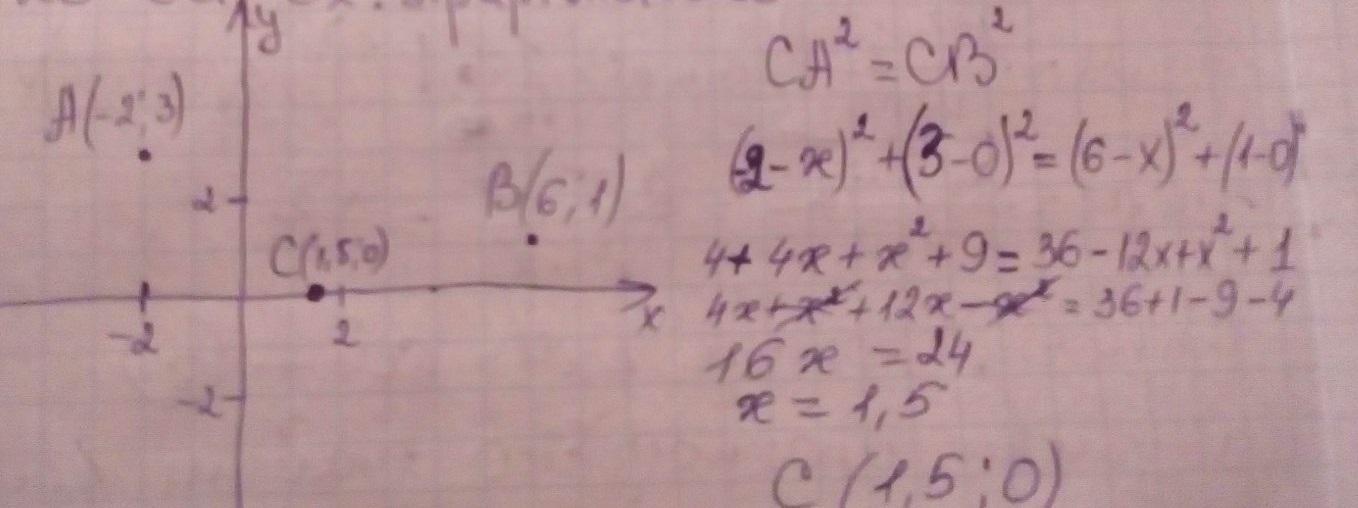 y
A(-2; 3)
2
B(6; 1)
C(1,5; 0)
-2
2
x
-2
CA² = CB²
(-2-x)² + (3-0)² = (6-x)² + (1-0)²
4 + 4x + x² + 9 = 36 - 12x + x² + 1
4x + x² + 12x - x² = 36 + 1 - 9 - 4
16x = 24
x = 1,5
C (1,5; 0)